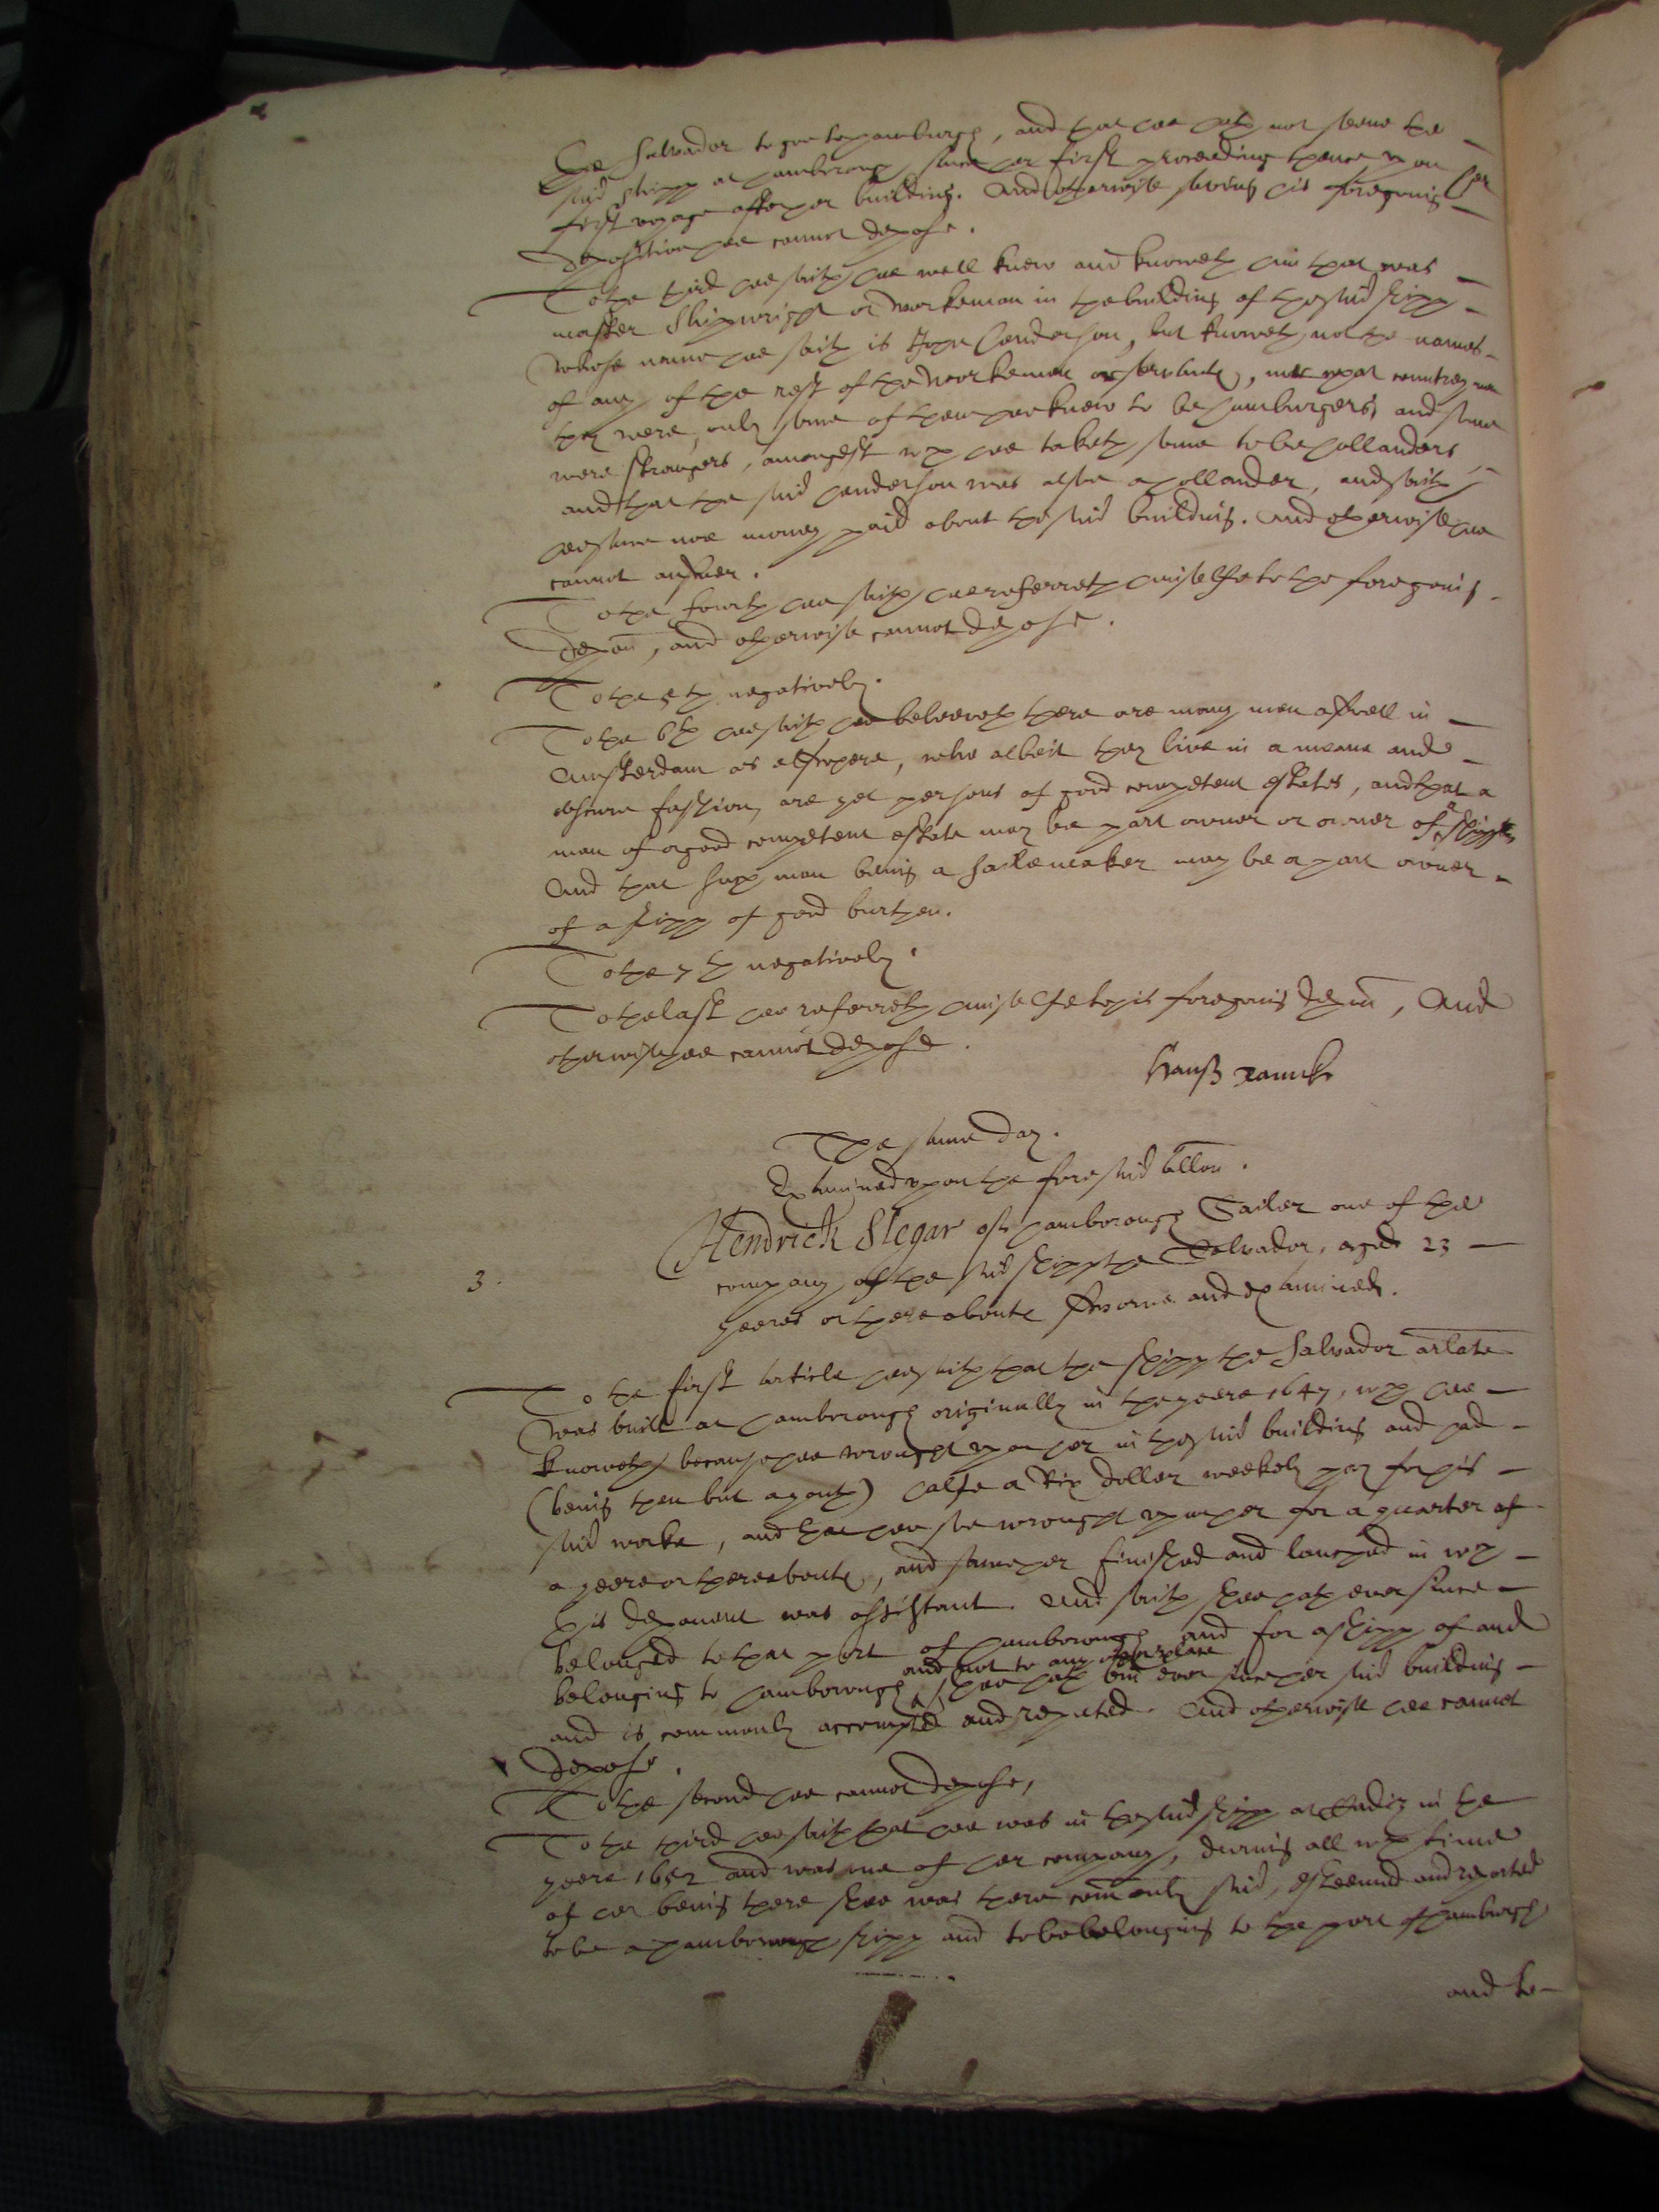 the Salvador to goe to hamburgh, and that hee hath not seene the
said shipp at hamborough since her first proceeding thence upon her
first voyage after her building. And otherwise saving his foregoing
deposition hee cannot depose.
To the third hee saith hee well knew and knoweth him that was
master Shipwright or workeman in the building of the said shipp
whose name hee saith is John Henderson, but knoweth not the names
of any of the rest of the workemen or servants, nor what countrey men
they were, only some of them hee knew to be hamburgers, and some
were strangers, amongest wch hee taketh some to be hollanders
and that the said henderson was alsoe a hollander, and saith
hee sawe noe money paid about the said building. And otherwise hee
cannot answer.
To the fourth hee saith hee referreth himselfe to the foregoing
depon, and otherwise cannot depose.
To the 5th negatively.
To the 6th hee saith hee beleeveth there are many men aswell in
Amsterdam as elswhere, who albeit they live in a meane and
obscure fashion, are yet persons of good competent estates, and that a
man of a good competent estate may be part owner or owner of a shipp
And that such man being a sailemaker may be a part owner
of a shipp of good burthen.
To the 7th negatively.
To the last hee referreth himselfe to his foregoing depon, And
otherwise hee cannot depose.
Hanß ranck
The same day.
Examined upon the foresaid allon.
3.
Hendrick Slegar of hamborough Sailer one of the
company of the said shipp the Salvador, aged 23
yeeres or thereabouts sworne and examined.
To the first article hee saith that the shipp the Salvador arlate
was built at hamborough originally in the yeere 1647, wch hee
knoweth because hee wrought upon her in the said building and had
(being then but a youth) halfe a Rix doller weekely pay for his
said worke, and that hee soe wrought upon her for a quarter of
a yeere or thereabouts, and sawe her finished and lanched in wch
this deponent was assistant. And saith shee hath ever since
belonged to that port of hamborough and for a shipp of and
belonging to hamborough and not to any other place shee hath bin ever since her said building
and is commonly accompted and reputed. And otherwise hee cannot
depose.
To the second hee cannot depose,
To the third hee saith that hee was in the said shipp at Cadiz in the
yeere 1652 and was one of her company, during all wch time
of her being there shee was there comonly said, esteemed and reported
to be a hamborough shipp and to be belonging to the port of hamburgh
and to